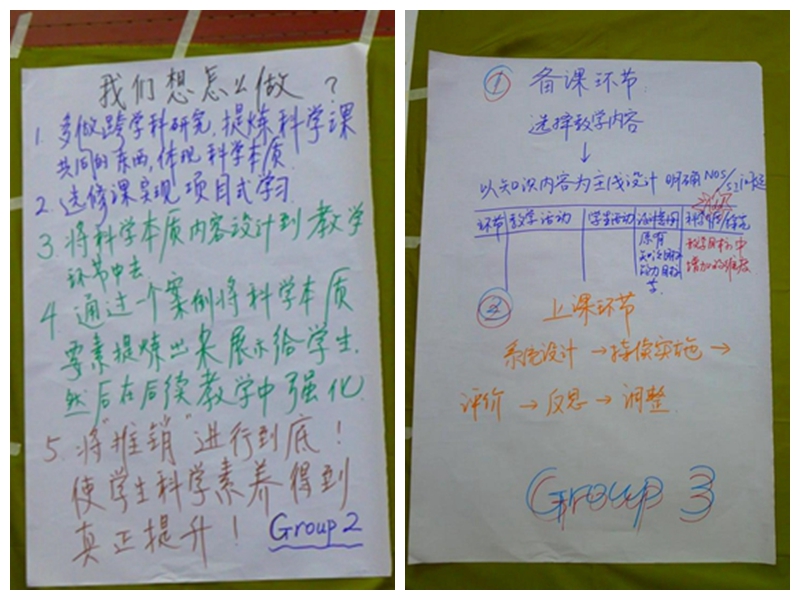 我们想怎么做？
1. 多做跨学科研究，提炼科学课
共同的东西，体现科学本质.
2. 选修课实现项目式学习.
3. 将科学本质内容设计到教学
环节中去.
4. 通过一个案例将科学本质
要素提炼出来展示给学生.
然后在后续教学中强化.
5. 将"推销"进行到底！
使学生科学素养得到
真正提升！
Group 2
① 备课环节.
选择教学内容
↓
以知识内容为主线设计 明确NOS/
环节 教学活动 学生活动 设计意图 科学本质
原有
教学目标中
增加的维度
② 上课环节
系统设计 → 持续实施 →
评价 → 反思 → 调整.
Group 3